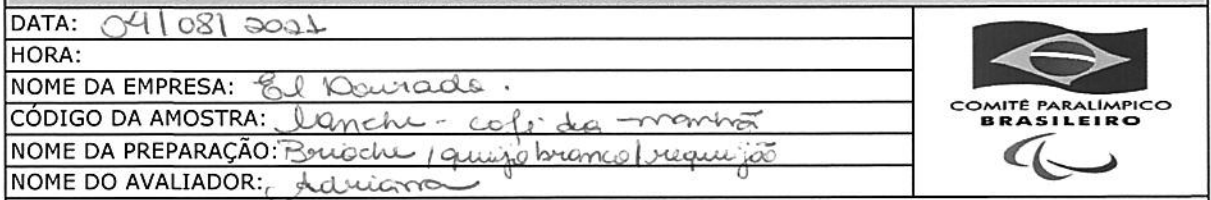 DATA: 04/08/2021
HORA:
NOME DA EMPRESA: El Dourado.
CÓDIGO DA AMOSTRA: Lanche - café da manhã
NOME DA PREPARAÇÃO: Brioche / queijo branco / requeijão
NOME DO AVALIADOR: Adriana
COMITÊ PARALÍMPICO
BRASILEIRO